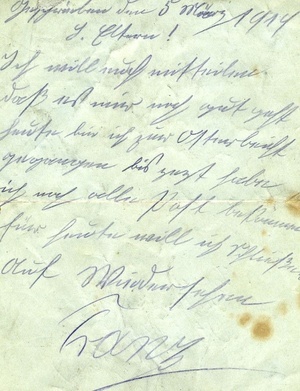 Geschrieben den 5 März 1914
L. Eltern!
Ich will euch mitteilen
daß es mir noch gut geht
heute bin ich zur Osterbeicht
gegangen bis jezt habe
ich noch alle Post bekommen
für heute will ich schließen
Auf Wiedersehen
Franz